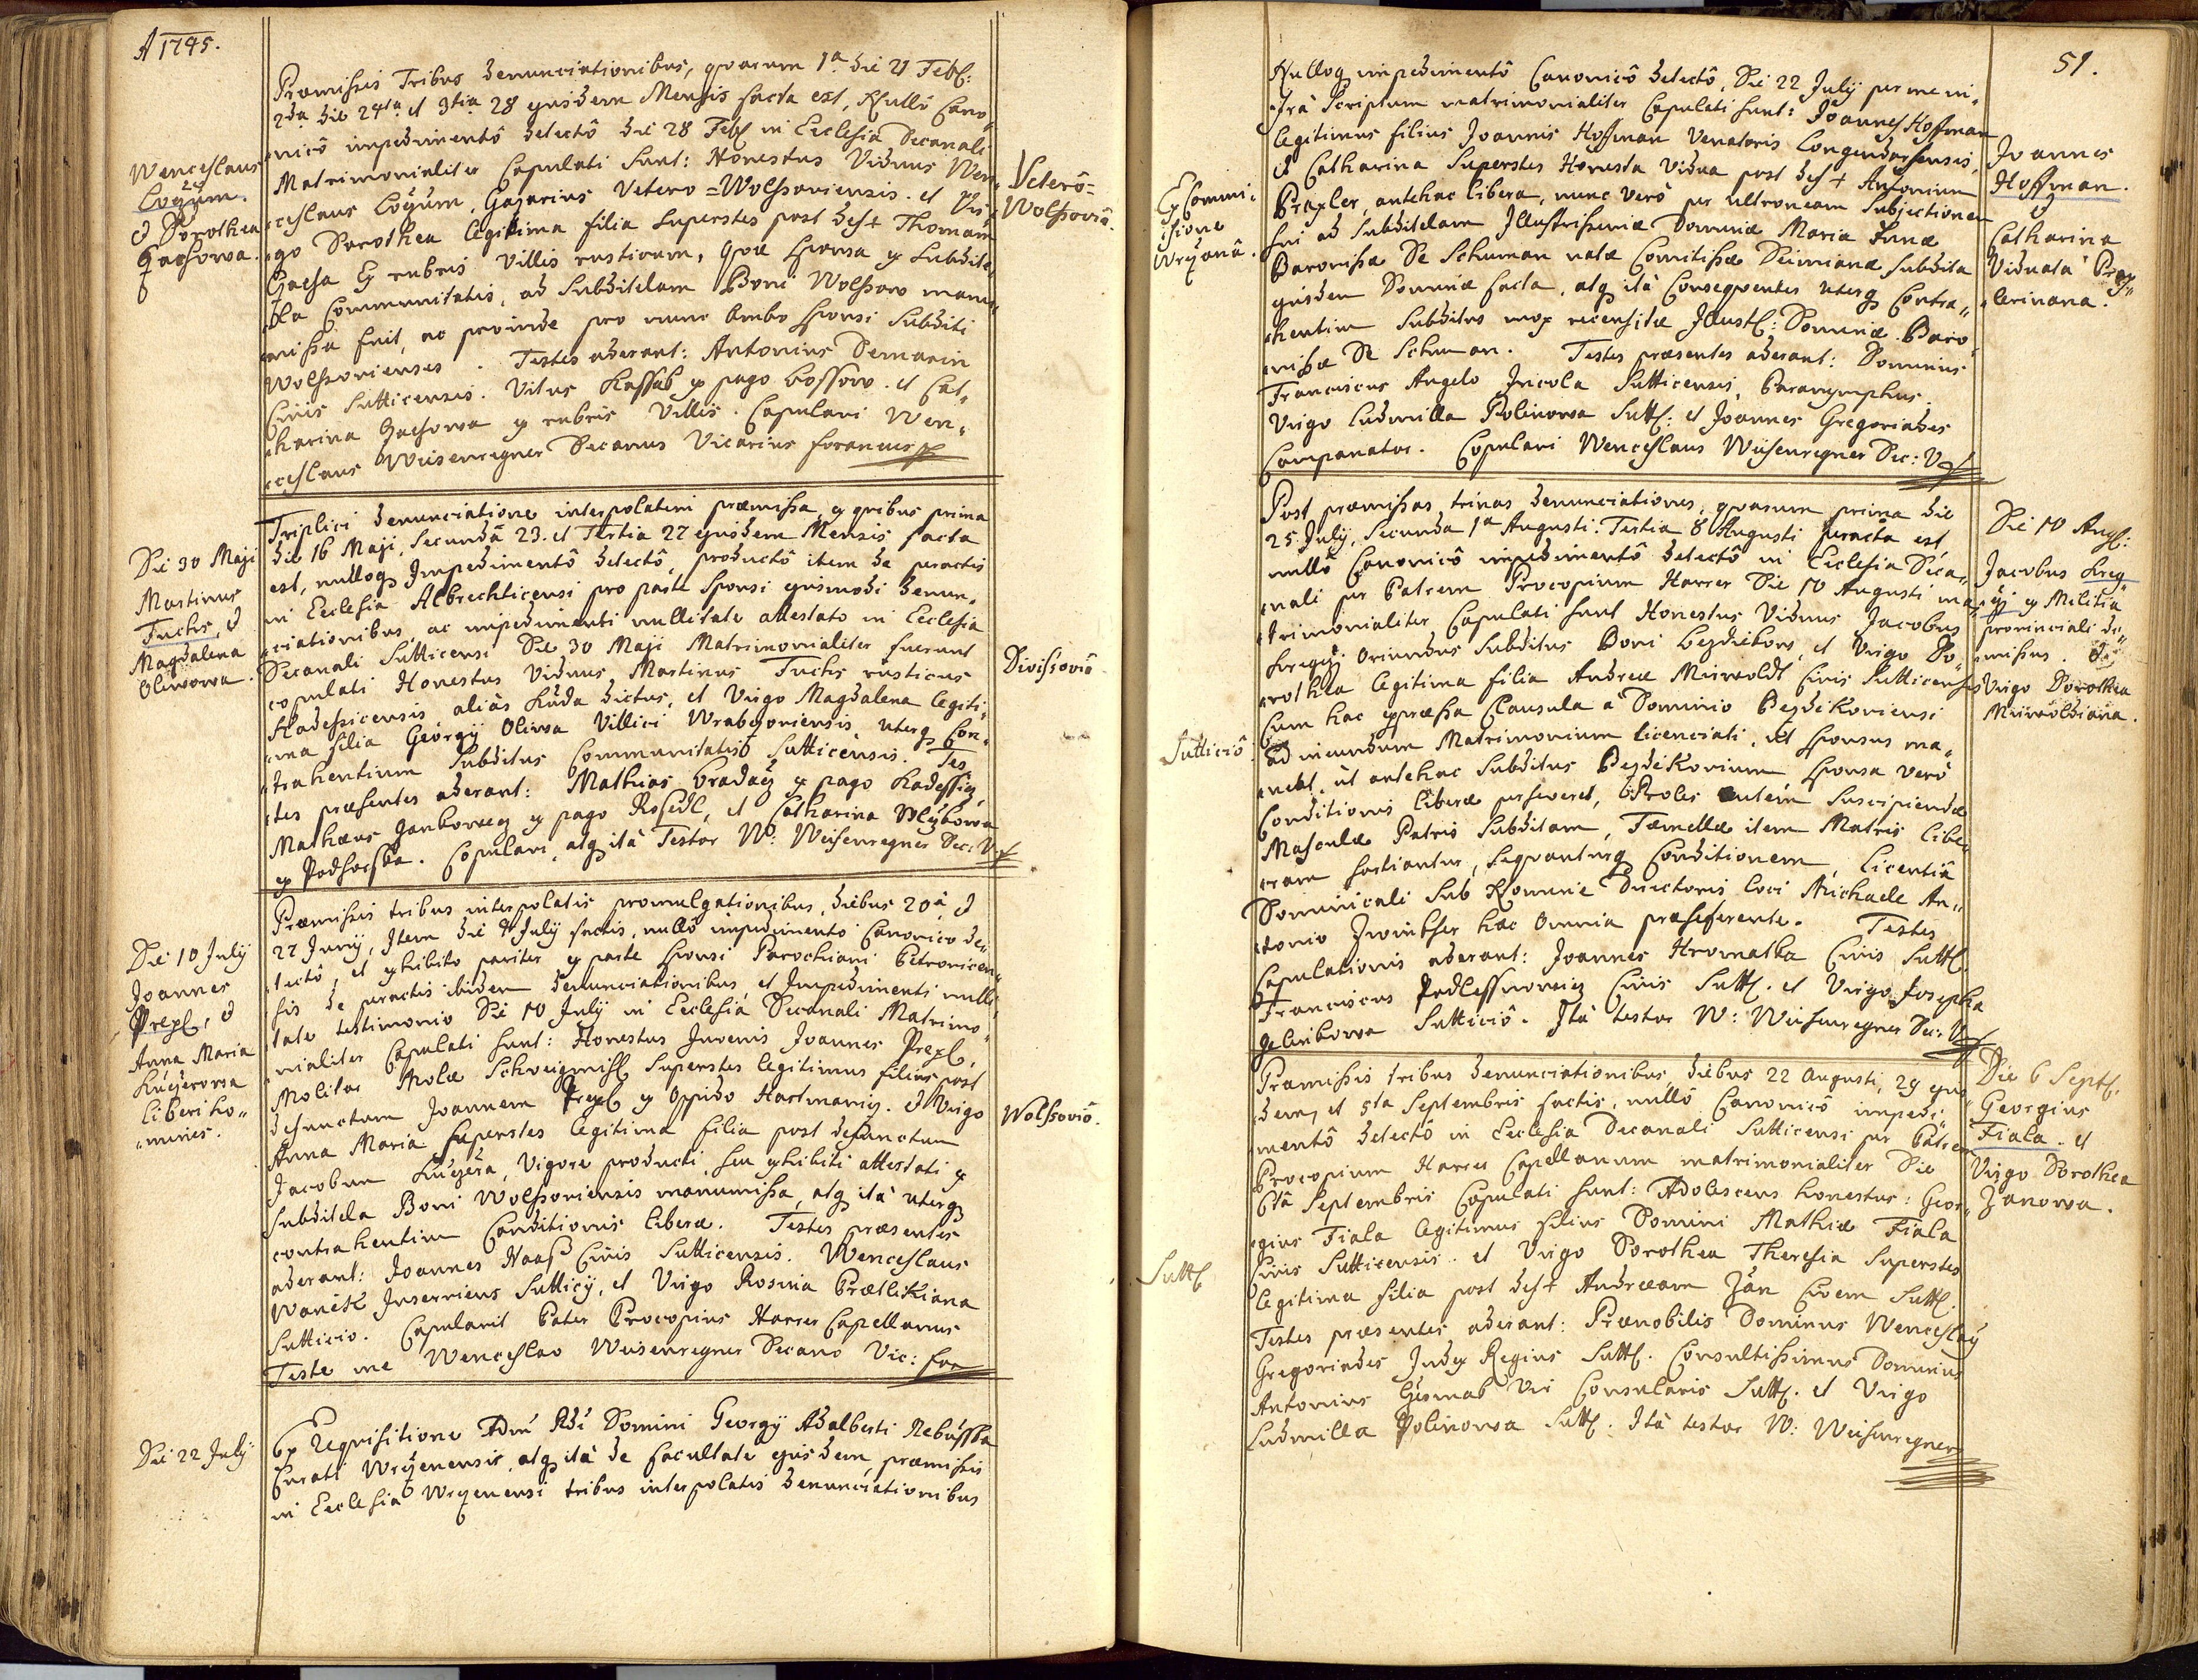 A 1745.
Præmissis Tribus denunciationibus, quarum 1ª die 21 Feb:
2da die 24ta et 3tia 28 ejusdem Mensis facta est, Nullô Cano„
„nicô impedimentô detectô die 28 Feb in Ecclesia Decanali
Matrimonialiter Copulati Sunt: Honestus Viduus Wen„
„ceslaus Loÿüm, Gazarius Vetero=Wolssoviensis. et Vir„
„go Dorothea legitima filia superstes post def+ Thomam
Gacha Ex rubris Villis rusticum, quæ Sponsa ex Subdite„
„la Communitatis, ad Subditelam Boni Wolssow manu„
„missa fuit, ac proinde pro nunc Ambo Sponsi Subditi
Wolssovienses. Testes aderant: Antonius Demarin
Civis Sutticensis. Vitus Kassab ex pago Kossow. et Cat„
„harina Gachowa ex rubris Villis. Copulavi Wen„
„ceslaus Weisenregner Decanus Vicarius foraneus
Wenceslaus
Loÿüm.
& Dorothea
Gachowa.
Veterô=
Wolssoviô.
Triplici denunciatione interpolatim præmissa, ex quibus prima
die 16 Maji, Secunda 23. et Tertia 27 ejusdem Mensis facta
est, nulloq Impedimentô detectô, productô item de peractis
in Ecclesia Albrechticensi pro parte Sponsi ejusmodi denun„
„ciationibus, ac impedimenti nullitate attestato in Ecclesia
Decanali Sutticensi Die 30 Maji Matrimonialiter fuerunt
copulati Honestus Viduus Martinus Fuchs rusticus
Kadessicensis, aliàs Kuda dictus, et Virgo Magdalena legiti„
„ma filia Georgÿ Oliwa Villici Wrabcoviensis, uterq Con„
„trahentium Subditus Communitatis Sutticensis. Tes„
„tes præsentes aderant: Mathias Bradacz ex pago Kadessicz,
Mathæus Jankowecz ex pago Rosedl, et Catharina Wlczkowa
ex Podhorska. Copulavi, atq ità Testor W: Weisenregner Dec: V
Die 30 Maji
Martinus
Fuchs, &
Magdalena
Oliwowa.
Divissoviô
Præmissis tribus interpolatis promulgationibus, diebus 20â, &
27 Junÿ, Item die 4 July factis, nullô impedimento Canonico de„
„tectô, et exhibito pariter ex parte Sponsi Parochiani Petrovicen„
„sis de peractis ibidem denunciationibus, et Impedimenti nulli„
„tate testimonio Die 10 July in Ecclesia Decanali Matrimo„
„nialiter Copulati sunt: Honestus Juvenis Joannes Prexl,
Molitor Molæ Schweigmihl Superstes legitimus filius post
defunctum Joannem Prexl ex Oppido Hartmanitz. & Virgo
Anna Maria superstes legitima filia post defunctum
Jacobum Kuczera, Vigore producti, seu exhibiti attestati ex
Subditela Boni Wolssoviensis manumissa, atq ità uterq
contrahentium Conditionis liberæ. Testes præsentes
aderant: Joannes Haass Civis Sutticensis. Wenceslaus
Waniek Inserviens Sutticÿ, et Virgo Rosina Brætlikiana
Sutticio. Copulavit Pater Procopius Harrer Capellanus
Teste me Wenceslao Weisenregner Decano Vic: for
Die 10 July
Joannes
Prexl, &
Anna Maria
Kuczerowa
liberi ho„
„mines.
Wolssoviô.
Ex Requisitione Adm Rdi Domini Georgÿ Adalberti Rebusska
Curati Wrczenensis, atq ità de facultate ejusdem, præmissis
in Ecclesia Wrczenensi tribus interpolatis denunciationibus
Die 22 July
51.
Nulloq impedimentô Canonicô detectô, Die 22 July per me in„
„fra Scriptum matrimonialiter Copulati sunt: Joannes Hoffman
legitimus filius Joannis Hoffman Venatoris Longendorfensis,
& Catharina Superstes Honesta Vidua post def+ Antonium
Praxler, antehac libera, nunc verò per ultroneam Subjectionem
sui ad Subditelam Illustrissimæ Dominæ Maria Annæ
Baronissæ De Schuman natæ Comitissæ Deimianæ subdita
ejusdem Dominæ facta, atq ità Consequenter uterq Contra„
„hentium Subditus mox recensitæ Illust: Dominæ Baro„
„nissæ De Schuman. Testes præsentes aderant: Dominus
Franciscus Angelo Incola Sutticensis, Paranymphus.
Virgo Ludmilla Polinowa Sutt: et Joannes Gregoriades
Campanator. Copulavi Wenceslaus Weisenregner Dec: V
Ex Commi„
„sione
Wrczanâ.
Joannes
Hoffman.
&
Catharina
Viduata Prax„
„lerinana.
Post præmissas trinas denunciationes, quarum prima die
25 July, Secunda 1ª Augusti. Tertia 8 Augusti peracta est,
nullô Canonicô impedimentô detectô in Ecclesia Deca„
„nali per Patrem Procopium Harrer Die 10 Augusti ma„
„trimonialiter Copulati sunt Honestus Viduus Jacobus
Kregczi oriundus Subditus Boni Bezdiekow, et Virgo Do„
„rothea legitima filia Andreæ Mürwoldt Civis Sutticensis
Cum hac expressa Clausula a Dominio Bezdiekoviensi
ad ineundum Matrimonium licenciati, ut Sponsus ma„
„neat, ut antehac Subditus Bezdiekovium Sponsa verò
Conditionis liberæ perseveret, Proles autem suscipiendæ
Masculæ Patris Subditam, Fæmellæ item Matris libe„
„ram sortiantur, sequanturq Conditionem, Licentiâ
Dominicali sub Nomine Directoris loci Michaele An„
„tonio Zwinkher hæc Omnia præseferente. Testes
Copulationis aderant: Joannes Hromatka Civis Sutt.
Franciscus Podlessnowicz Civis Sutt. et Virgo Josepha
Jelinkowa Sutticiô. Ità testor W: Weisenregner Dec: V
Sutticiô.
Die 10 Aug:
Jacobus Kreg„
„czi ex Militia
provinciali di„
„missus. &
Virgo Dorothea
Mürwoldiana.
Præmissis tribus denunciationibus, diebus 22 Augusti, 29 ejus„
„dem, et 5ta Septembris factis, nullô Canonicô impedi„
„mentô detectô in Ecclesia Decanali Sutticensi per Patrem
Procopium Harrer Capellanum matrimonialiter Die
6tâ Septembris Copulati sunt: Adolescens honestus: Geor„
„gius Fiala legitimus filius Domini Mathiæ Fiala
Civis Sutticensis. et Virgo Dorothea Theresia Superstes
legitima filia post def+ Andream Zán Civem Sutt.
Testes præsentes aderant: Prænobilis Dominus Wenceslaÿ
Gregoriades Judex Regius Sutt. Consultissimus Dominus
Antonius Vir Consularis Sutt. et Virgo
Ludmilla Polinowa Sutt. Ità testor W: Weisenregner
Sutt
Die 6 Sept.
Georgius
Fiala. et
Virgo Dorothea
Zanowa.